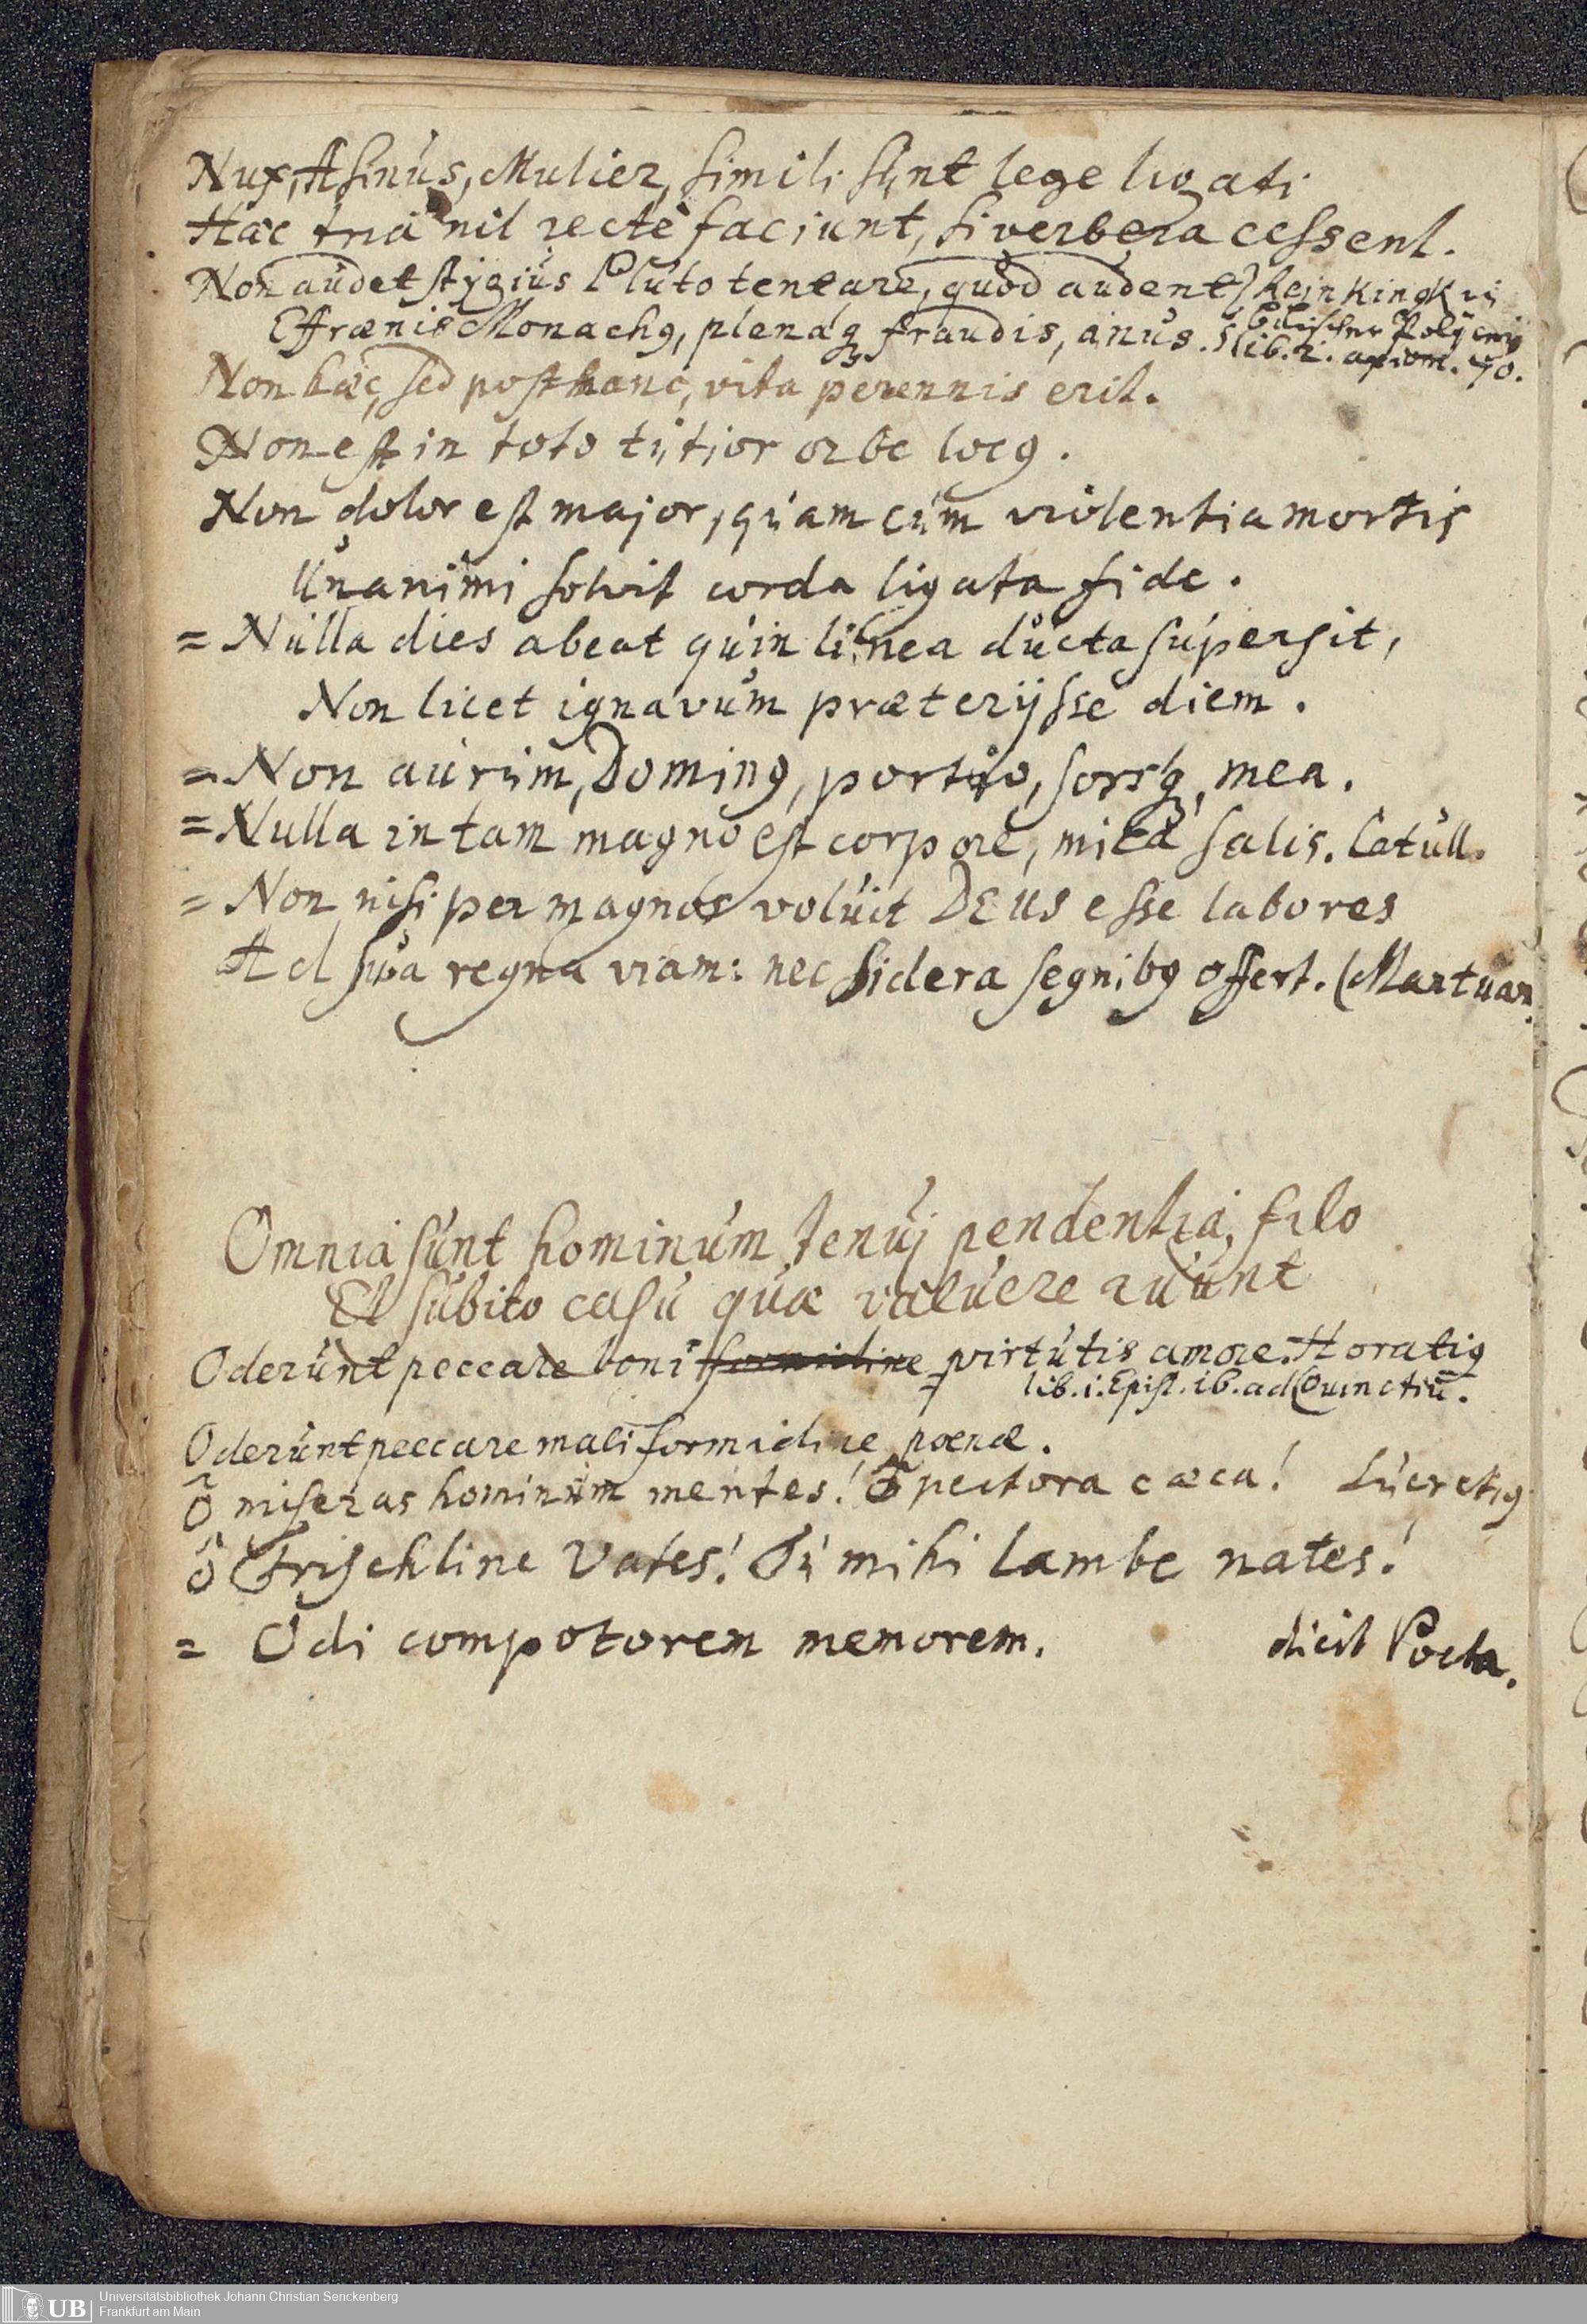 Nux, Asinus, Mulier, simili sunt lege ligati
Hæc tria nil rectè faciunt, si verbera cessent.
Non audet stygius Pluto tentare, quod audent
Effrænis Monachꝰ, plenaqꝫ fraudis, anus.
Reinkingk in
Biblischer Policeij
lib. 2. axiom. 70.
Non hæc, sed post hanc, vita perennis erit.
Non est in toto tutior orbe locꝰ.
Non dolor est major, quam cum violentia mortis
Unanimi solvit corda ligata fide.
= Nulla dies abeat quin linea ducta supersit,
Non licet ignavum præterijsse diem.
= Non aurum, Dominꝰ, portio, sorsqꝫ, mea.
= Nulla in tam magno est corpore, mica salis. Catull.
= Non nisi per magnos voluit DEUS esse labores
Ad sua regna viam: nec sidera segnibꝰ offert. (Mantuan.
Omnia sunt hominum tenuj pendentia filo
Et subito casu quæ valuere ruunt
Oderunt peccare boni formidine virtutis amore. Horatiꝰ
lib. i. Epist. 16. ad Quinctiū.
Oderunt peccare mali formidine poenæ.
õ miseras hominum mentes! Õ pectora cæca! Lucretiꝰ
ô Frischline Vates! Tu mihi lambe nates!
= Odi compotorem memorem. dicit Poeta.
Universitätsbibliothek Johann Christian Senckenberg
Frankfurt am Main
UB